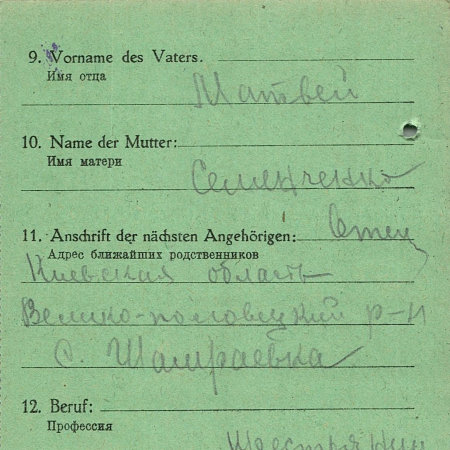 9. Vorname des Vaters.
Имя отца
Матвей
10. Name der Mutter:
Имя матери
Семенченко
11. Anschrift der nächsten Angehörigen: Отец
Адрес ближайших родственников
Киевская область
Велико-половецкий р-н
с. Шамраевка
12. Beruf:
Профессия